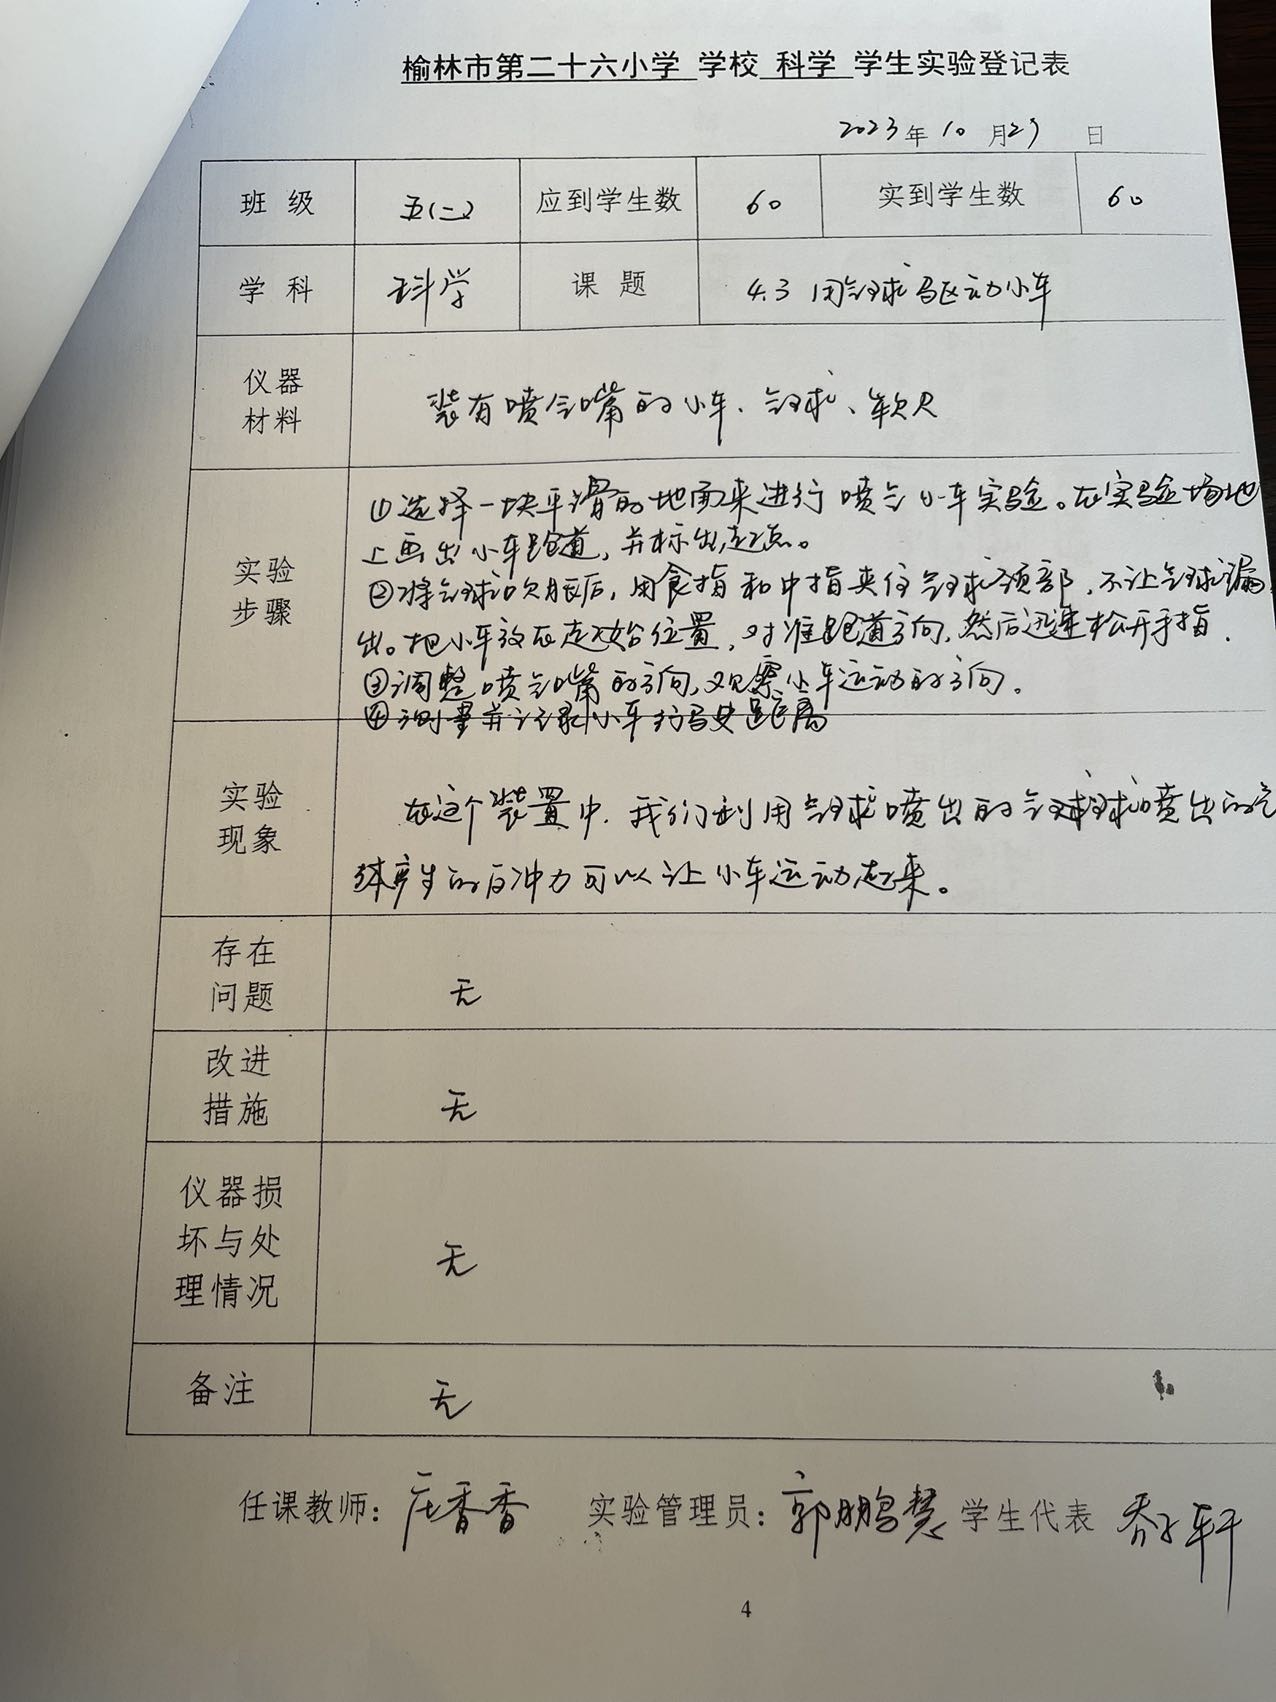 榆林市第二十六小学 学校 科学 学生实验登记表
2023年10月27日
班级 五(二) 应到学生数 60 实到学生数 60
学科 科学 课题 4.3 用气球驱动小车
仪器
材料
装有喷气嘴的小车、气球、软尺
实验
步骤
①选择一块平滑的地面来进行喷气小车实验。在实验场地
上画出小车跑道,并标出起点。
②将气球吹胀后,用食指和中指夹住气球颈部,不让气球漏
出。把小车放在起始位置,对准跑道方向,然后迅速松开手指.
③调整喷气嘴的方向,观察小车运动的方向。
④测量并记录小车行驶距离
实验
现象
在这个装置中,我们利用气球喷出的气球球喷出的气
体产生的反冲力可以让小车运动起来。
存在
问题
无
改进
措施
无
仪器损
坏与处
理情况
无
备注 无
任课教师: 庄香香 实验管理员: 郭鹏慧 学生代表 乔子轩
4